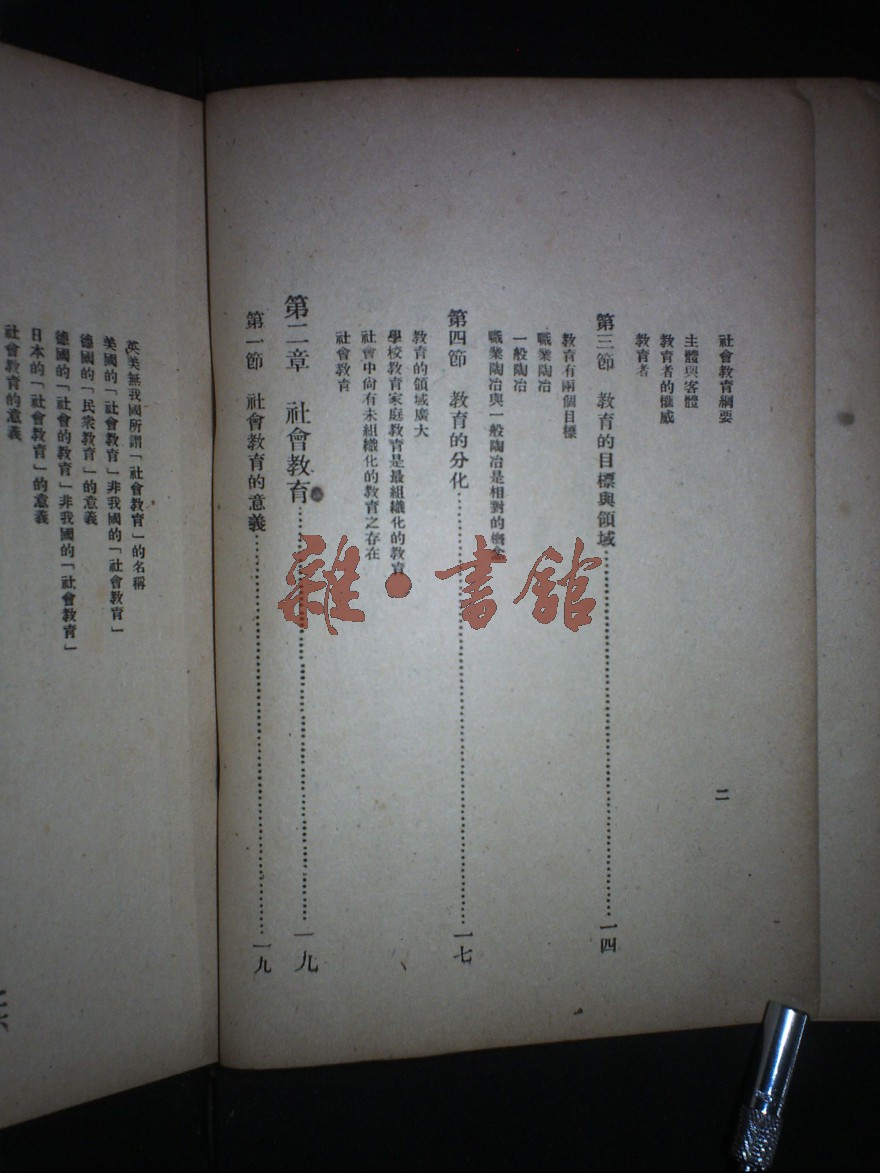 社會教育綱要
二
主體與客體
教育者的權威
教育者
第三節 教育的目標與領域 一四
教育有兩個目標
職業陶冶
一般陶冶
職業陶冶與一般陶冶是相對的概念
第四節 教育的分化 一七
教育的領域廣大
學校教育家庭教育是最組織化的教育
社會中尙有未組織化的教育之存在
社會教育
第二章 社會教育 一九
第一節 社會教育的意義 一九
英美無我國所謂「社會教育」的名稱
美國的「社會教育」非我國的「社會教育」
德國的「民衆教育」的意義
德國的「社會的教育」非我國的「社會教育」
日本的「社會教育」的意義
社會教育的意義
雜·書館